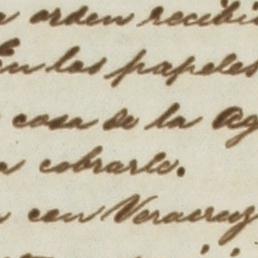 orden recibi
En los papeles
cosa de la Ag
cobrarlo.
con Veracruz